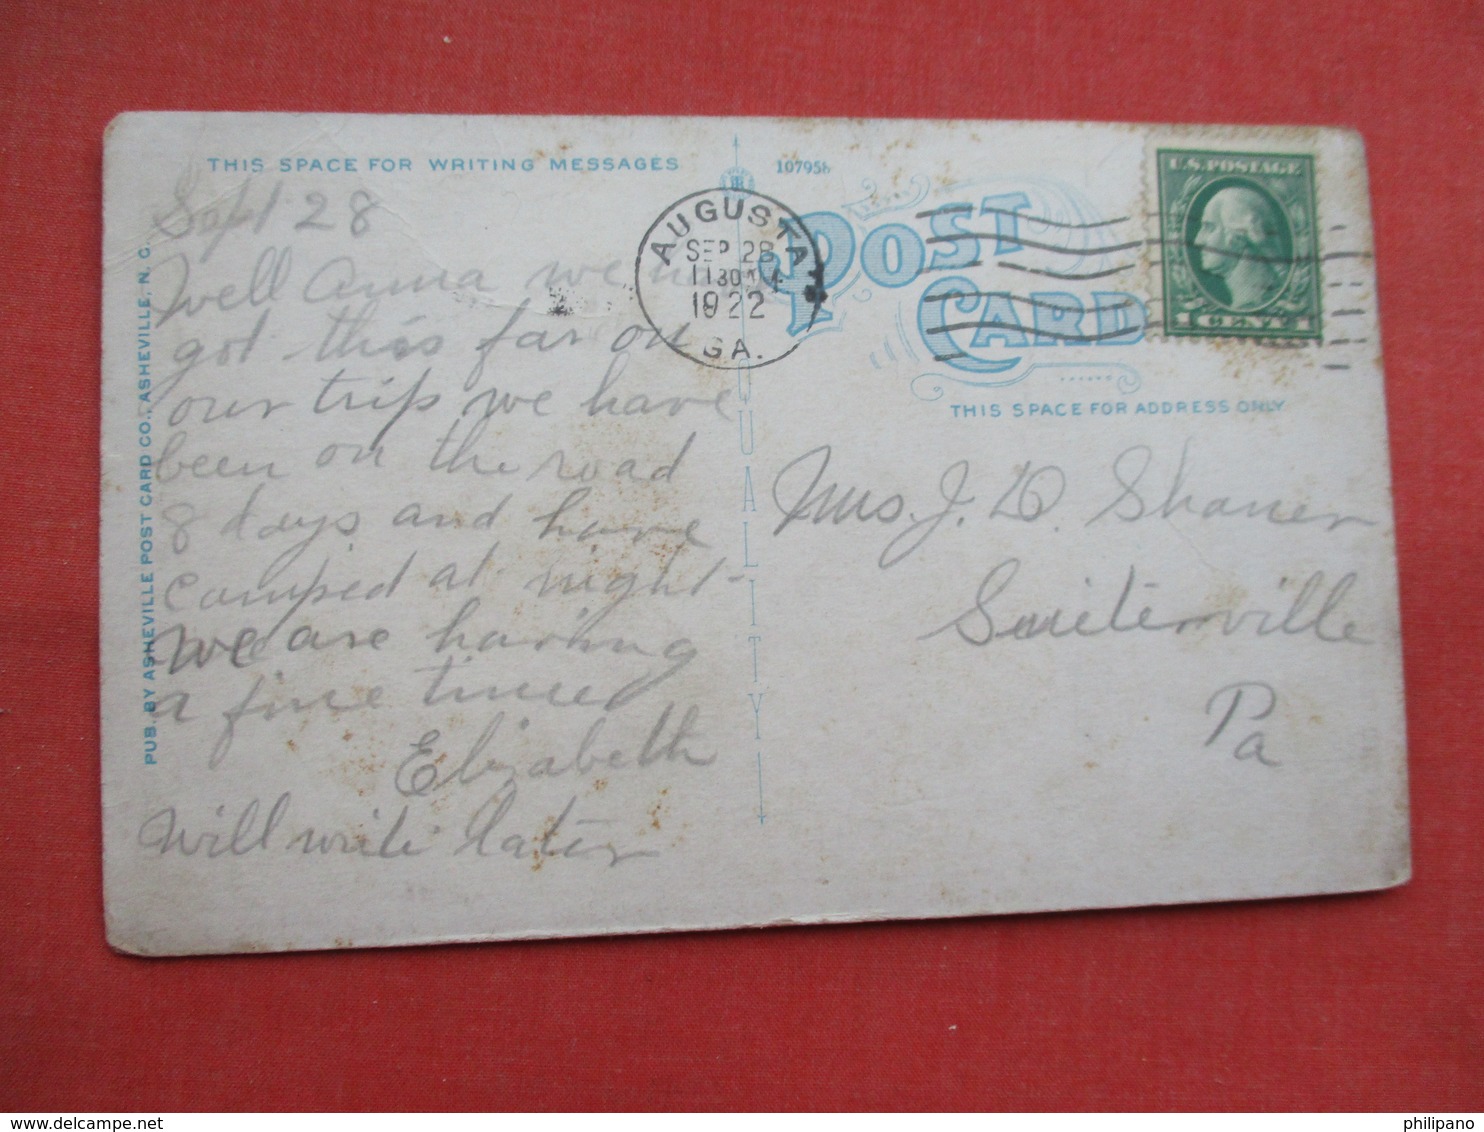 THIS SPACE FOR WRITING MESSAGES
Sept 28
Well Anna we
got this far on
our trip we have
been on the road
8 days and have
camped at night
we are having
a fine time
Elizabeth
Will write later
PUB. BY ASHEVILLE POST CARD CO., ASHEVILLE, N. C.
QUALITY
107958
AUGUSTA
SEP 28
1130AM
1922
GA.
POST
CARD
U.S. POSTAGE
1 CENT 1
THIS SPACE FOR ADDRESS ONLY
Mrs. J. D. Shaner
Suiterville
Pa
philipano